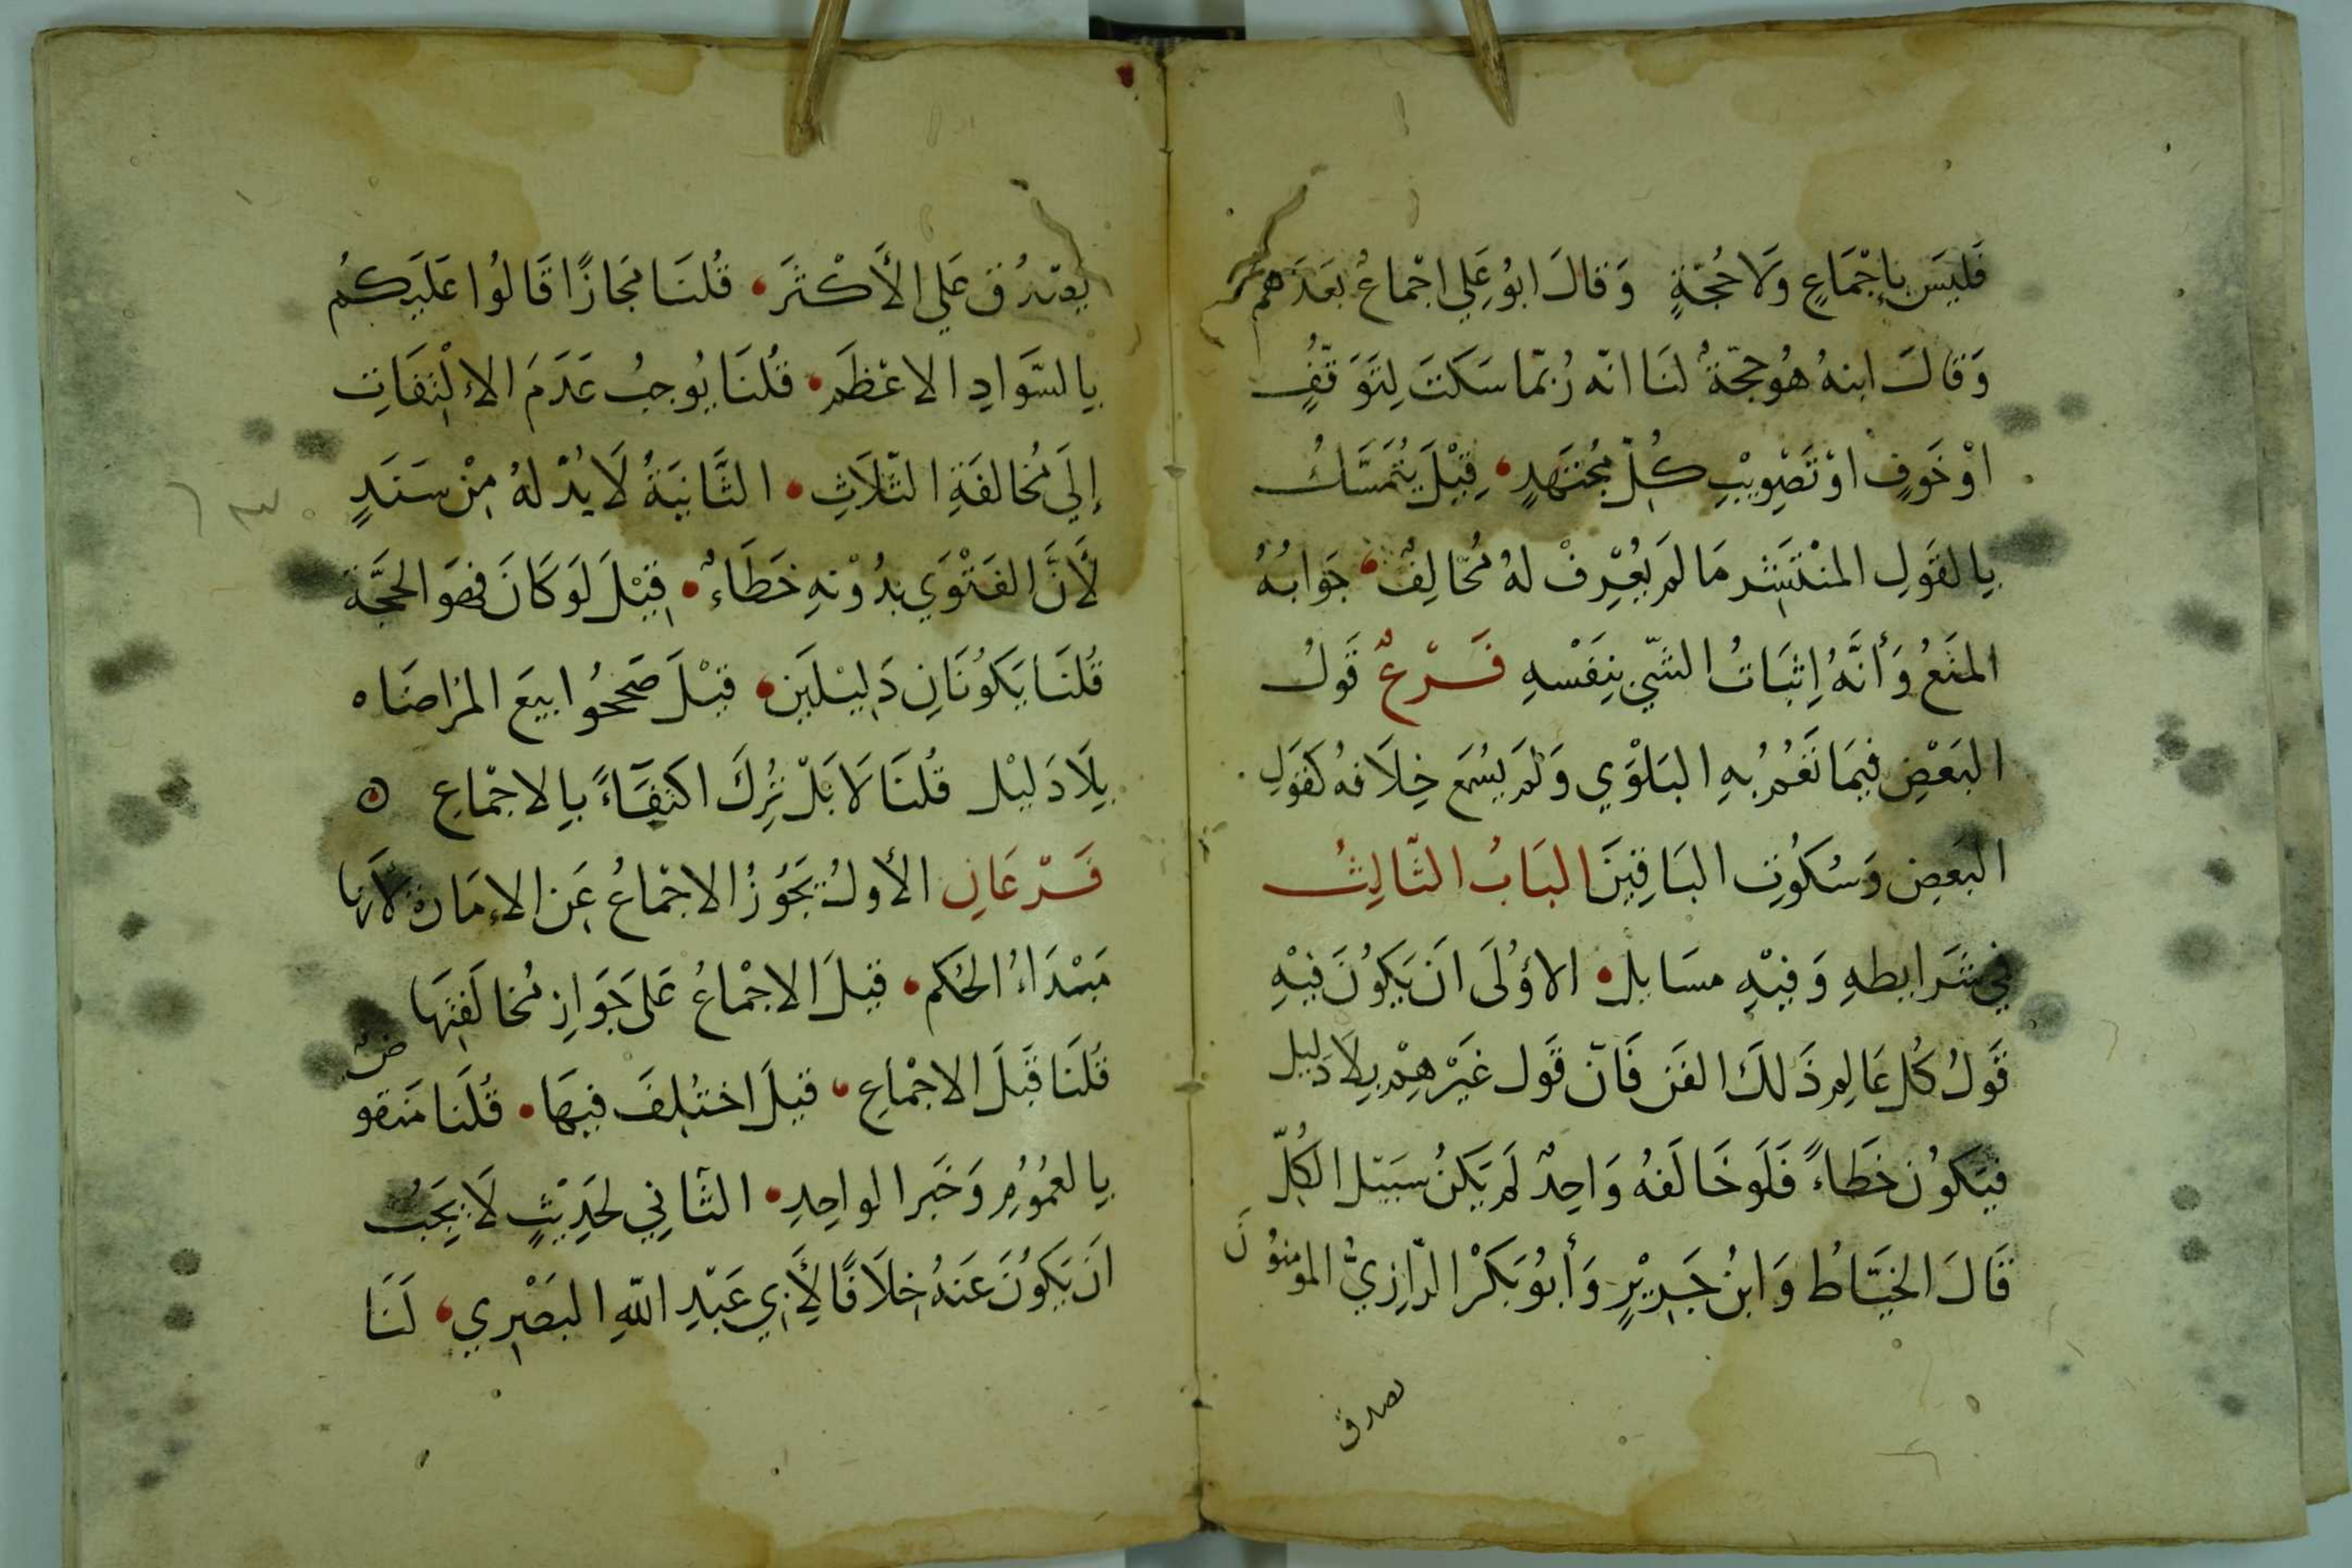 فَلَيسَ بِإِجْمَاعٍ وَلَا حُجَّةٍ وَقَالَ ابُو عَلِي اجْمَاعُ بَعَدَهم
وَقَالَ ابنهُ هُو حجّةُ لَنَا انّه رُبمّا سَكَتَ لِتَوَقّفٍ
اوْ خَوفٍ اوْ تَصْوِيْبِ كُلّ مُجْتَهِدٍ قِيْلَ يُتَمَسَّكُ
بِالقَولِ المنْتَشِر مَا لَم يُعْرِفْ لهُ مُخَالِفٌ جَوابُهُ
المنَعُ وَأنَّهُ إِثبَاتُ الشيّ بِنَفْسهِ فَرْعٌ قَولُ
البَعْضِ فِيمَا تَعُمُّ بهِ البَلوْي وَلَم يُسْمَع خِلَافهُ كقَولِ
البَعضِ وَسُكوُتِ البَاقِينَ البَابُ الثّالِثُ
في شَرَايطهِ وَفيْهِ مسَايل الاوُلَى انَ يَكوُنَ فيْهِ
قَولُ كُل عَالِم ذَلكَ الفَن فَانّ قَول غَيْرهِمْ بِلَا دَليل
فيَكوُن خَطَاءً فَلَو خَالَفهُ وَاحِدٌ لَم يَكنُ سبَيل الكُلّ
قَالَ الخيَّاطُ وَابنُ جَرِيْرٍ وَأبوُ بَكرْ الرّازِيُّ المومنوُنَ
يصدق
يصْدُق عَلي الأَكْثَرَ قُلنَا مَجَازًا قَالوُا عَلَيكمُ
بِالسَّوادِ الاعْظَمَ قُلنَا يُوجبُ عَدَمَ الاِلْتِفَاتِ
إلَي مُخَالفَةِ الثّلَاثِ الثَّانيَةُ لَا بُدّ لهُ مِنْ سَنَدٍ
لأَنَّ الفَتْوَي بِدُوْنهِ خَطَاءٌ قِيْلَ لَو كَانَ فهوَ الحجَّة
قُلنَا يَكوُنَانِ دَلِيْلَين قيْلَ صَححُّوا بيعَ المراضَاه
بِلَا دَليْل قُلنَا لَا بَلْ تُرِكَ اكتفَاءً بِالاجْماعِ
فَرْعَانِ الأولُ يَجَوُزُ الاجْماعُ عَن الاِمَارة لاَنها
مَبْدَاءُ الحُكم قيلَ الاجْماعُ عَلى جَوَازِ مُخالَفتِهَا
قُلنَا قَبلَ الاجْماعِ قيلَ اختُلِفَ فيهَا قُلنَا مَنقوضٌ
بِالعُموُمِ وَخَبر الواحِدِ الثّانِي لحَدِيْثٍ لَا يَجَبُ
انَ يَكوُنَ عَنهُ خِلَافًا لأَبِي عَبْدِ اللّهِ البَصْرِي لَنَا